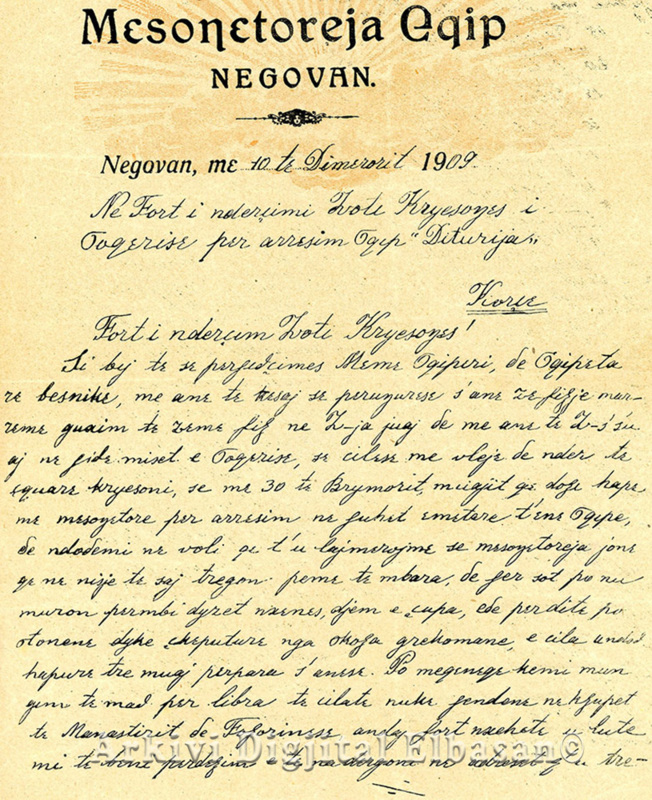 Mɛsoŋɛtoreja Ɑqip
NEGOVAN.
Negovan, mɛ 10 tɛ Dimɛrorit 1909
Nɛ Fort i nderumi Zoti Kryesoŋes i
Ꞇoqerise per arresim Ꞇqip "Diturija„
Korçe
Fort i nderum Zoti Kryesoŋes!
Si bij te se Meme Ꞇqiperi, de Ꞇqipeta
re besnike, me ane te kesaj se s'ane ze fiſje mar
reme guaim te zeme fiſ ne Z-ja juaj de me ane te Z-s s'u
aj ne gide miset e Ꞇoqerise, se cilese me vleje de nder te
çquare kryesoni, se me 30 te Brymorit, muajit qe doli hape
me mesoŋetore per arresim ne guhet emetare t'ene Ꞇqipe,
de ndodemi ne voli qe t'u lajmerojme se mesoŋetoreja jone
qe ne nisje te saj tregon peme te mbara, de ger sot po nu
muron permbi dyzet nxenes, djem e çupa, ede perdite po
stonene dyke çkeputure nga skoſa grekomane, e cila
hapure tre muaj perpara s'anese. Po megenege kemi mun
gim te mad per libra te cilate nuke gendene ne
te Manastirit de Folorinese andaj fort nxehete u lute
mi te bene e te na dergoni ne qe u tre-
Arkivi Digjital Elbasan©